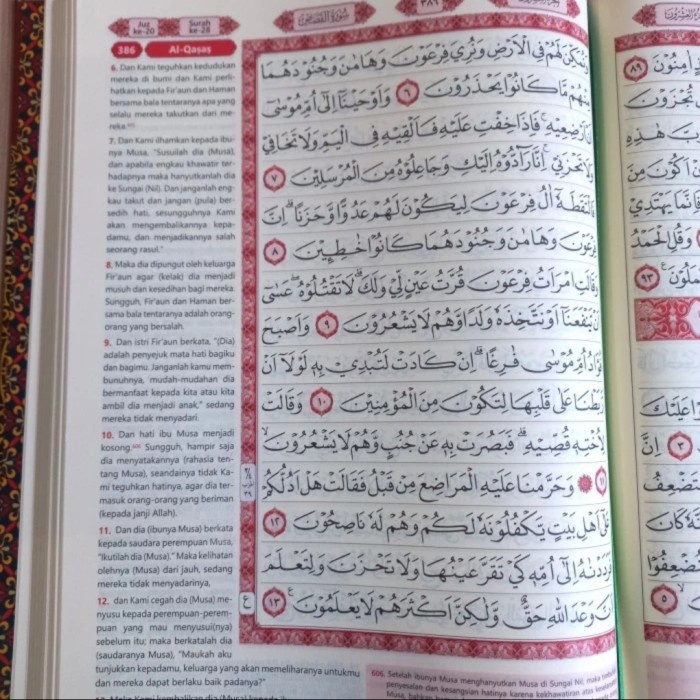 Juz ke-20
Surah ke-28
سورة القصص
٣٨٦
386
Al-Qaṣaṣ
6. Dan Kami teguhkan kedudukan
mereka di bumi dan Kami perli-
hatkan kepada Fir'aun dan Haman
bersama bala tentaranya apa yang
selalu mereka takutkan dari me-
reka.
7. Dan Kami ilhamkan kepada ibu-
nya Musa, "Susuilah dia (Musa),
dan apabila engkau khawatir ter-
hadapnya maka hanyutkanlah dia
ke Sungai (Nil). Dan janganlah eng-
kau takut dan jangan (pula) ber-
sedih hati, sesungguhnya Kami
akan mengembalikannya kepa-
damu, dan menjadikannya salah
seorang rasul."
8. Maka dia dipungut oleh keluarga
Fir'aun agar (kelak) dia menjadi
musuh dan kesedihan bagi mereka.
Sungguh, Fir'aun dan Haman ber-
sama bala tentaranya adalah orang-
orang yang bersalah.
9. Dan istri Fir'aun berkata, "(Dia)
adalah penyejuk mata hati bagiku
dan bagimu. Janganlah kamu mem-
bunuhnya, mudah-mudahan dia
bermanfaat kepada kita atau kita
ambil dia menjadi anak," sedang
mereka tidak menyadari.
10. Dan hati ibu Musa menjadi
kosong. Sungguh, hampir saja
dia menyatakannya (rahasia ten-
tang Musa), seandainya tidak Ka-
mi teguhkan hatinya, agar dia ter-
masuk orang-orang yang beriman
(kepada janji Allah).
11. Dan dia (ibunya Musa) berkata
kepada saudara perempuan Musa,
"Ikutilah dia (Musa)." Maka kelihatan
olehnya (Musa) dari jauh, sedang
mereka tidak menyadarinya,
12. dan Kami cegah dia (Musa) me-
nyusu kepada perempuan-perem-
puan yang mau menyusui(nya)
sebelum itu; maka berkatalah dia
(saudaranya Musa), "Maukah aku
tunjukkan kepadamu, keluarga yang akan memeliharanya untukmu
dan mereka dapat berlaku baik padanya?"
وَنُمَكِّنَ لَهُمْ فِى الْاَرْضِ وَنُرِيَ فِرْعَوْنَ وَهَامٰنَ وَجُنُوْدَهُمَا
مِنْهُمْ مَّا كَانُوْا يَحْذَرُوْنَ ٦ وَاَوْحَيْنَآ اِلٰٓى اُمِّ مُوْسٰٓى
اَنْ اَرْضِعِيْهِۚ فَاِذَا خِفْتِ عَلَيْهِ فَاَلْقِيْهِ فِى الْيَمِّ وَلَا تَخَافِيْ
وَلَا تَحْزَنِيْۚ اِنَّا رَاۤدُّوْهُ اِلَيْكِ وَجَاعِلُوْهُ مِنَ الْمُرْسَلِيْنَ ٧
فَالْتَقَطَهٗٓ اٰلُ فِرْعَوْنَ لِيَكُوْنَ لَهُمْ عَدُوًّا وَّحَزَنًاۗ اِنَّ
فِرْعَوْنَ وَهَامٰنَ وَجُنُوْدَهُمَا كَانُوْا خٰطِـِٕيْنَ ٨
وَقَالَتِ امْرَاَتُ فِرْعَوْنَ قُرَّتُ عَيْنٍ لِّيْ وَلَكَۗ لَا تَقْتُلُوْهُۖ عَسٰٓى
اَنْ يَّنْفَعَنَآ اَوْ نَتَّخِذَهٗ وَلَدًا وَّهُمْ لَا يَشْعُرُوْنَ ٩ وَاَصْبَحَ
فُؤَادُ اُمِّ مُوْسٰى فٰرِغًاۗ اِنْ كَادَتْ لَتُبْدِيْ بِهٖ لَوْلَآ اَنْ
رَّبَطْنَا عَلٰى قَلْبِهَا لِتَكُوْنَ مِنَ الْمُؤْمِنِيْنَ ١٠ وَقَالَتْ
لِاُخْتِهٖ قُصِّيْهِۗ فَبَصُرَتْ بِهٖ عَنْ جُنُبٍ وَّهُمْ لَا يَشْعُرُوْنَۙ
١١ ۞ وَحَرَّمْنَا عَلَيْهِ الْمَرَاضِعَ مِنْ قَبْلُ فَقَالَتْ هَلْ اَدُلُّكُمْ
عَلٰٓى اَهْلِ بَيْتٍ يَّكْفُلُوْنَهٗ لَكُمْ وَهُمْ لَهٗ نَاصِحُوْنَ ١٢
فَرَدَدْنٰهُ اِلٰٓى اُمِّهٖ كَيْ تَقَرَّ عَيْنُهَا وَلَا تَحْزَنَ وَلِتَعْلَمَ
اَنَّ وَعْدَ اللّٰهِ حَقٌّ وَّلٰكِنَّ اَكْثَرَهُمْ لَا يَعْلَمُوْنَ ١٣
606. Setelah ibunya Musa menghanyutkan Musa di Sungai Nil, maka
penyesalan dan kesangsian hatinya karena kekhawatiran atas